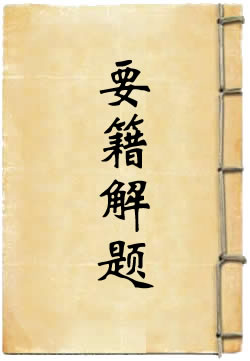 要籍解题